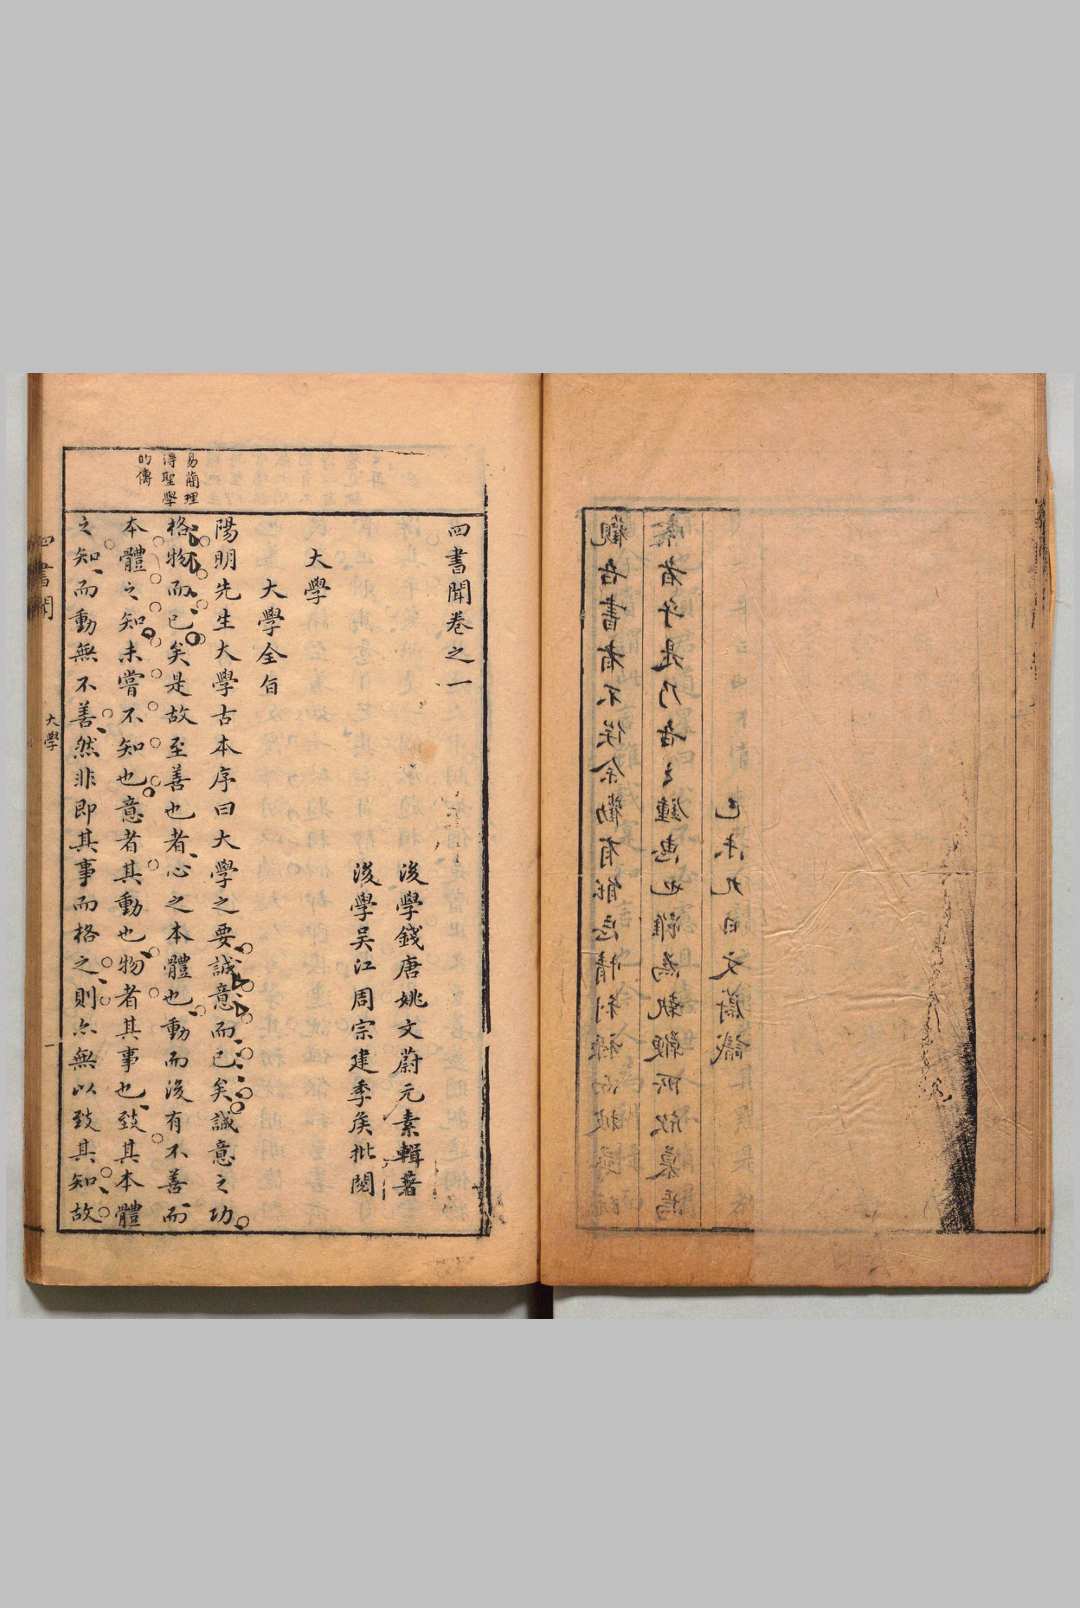 觀吾書者不俟余勸有能忘情利祿而披
者乎是乃吾之也雖為執鞭所欣慕焉
己未九日文蔚識
四書聞卷之一
後學錢唐姚文蔚元素輯著
後學吳江周宗建季侯批閱
大學
大學全旨
易簡理
得聖學
的傳
陽明先生大學古本序曰大學之要誠意而已矣誠意之功
格物而已矣是故至善也者心之本體也動而後有不善而
本體之知未嘗不知也意者其動也物者其事也致其本體
之知而動無不善然非即其事而格之則亦無以致其知故
四書聞
大學
一